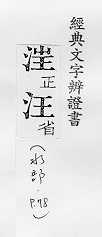 經典文字辨證書
正
汪省
(水部·P.78)